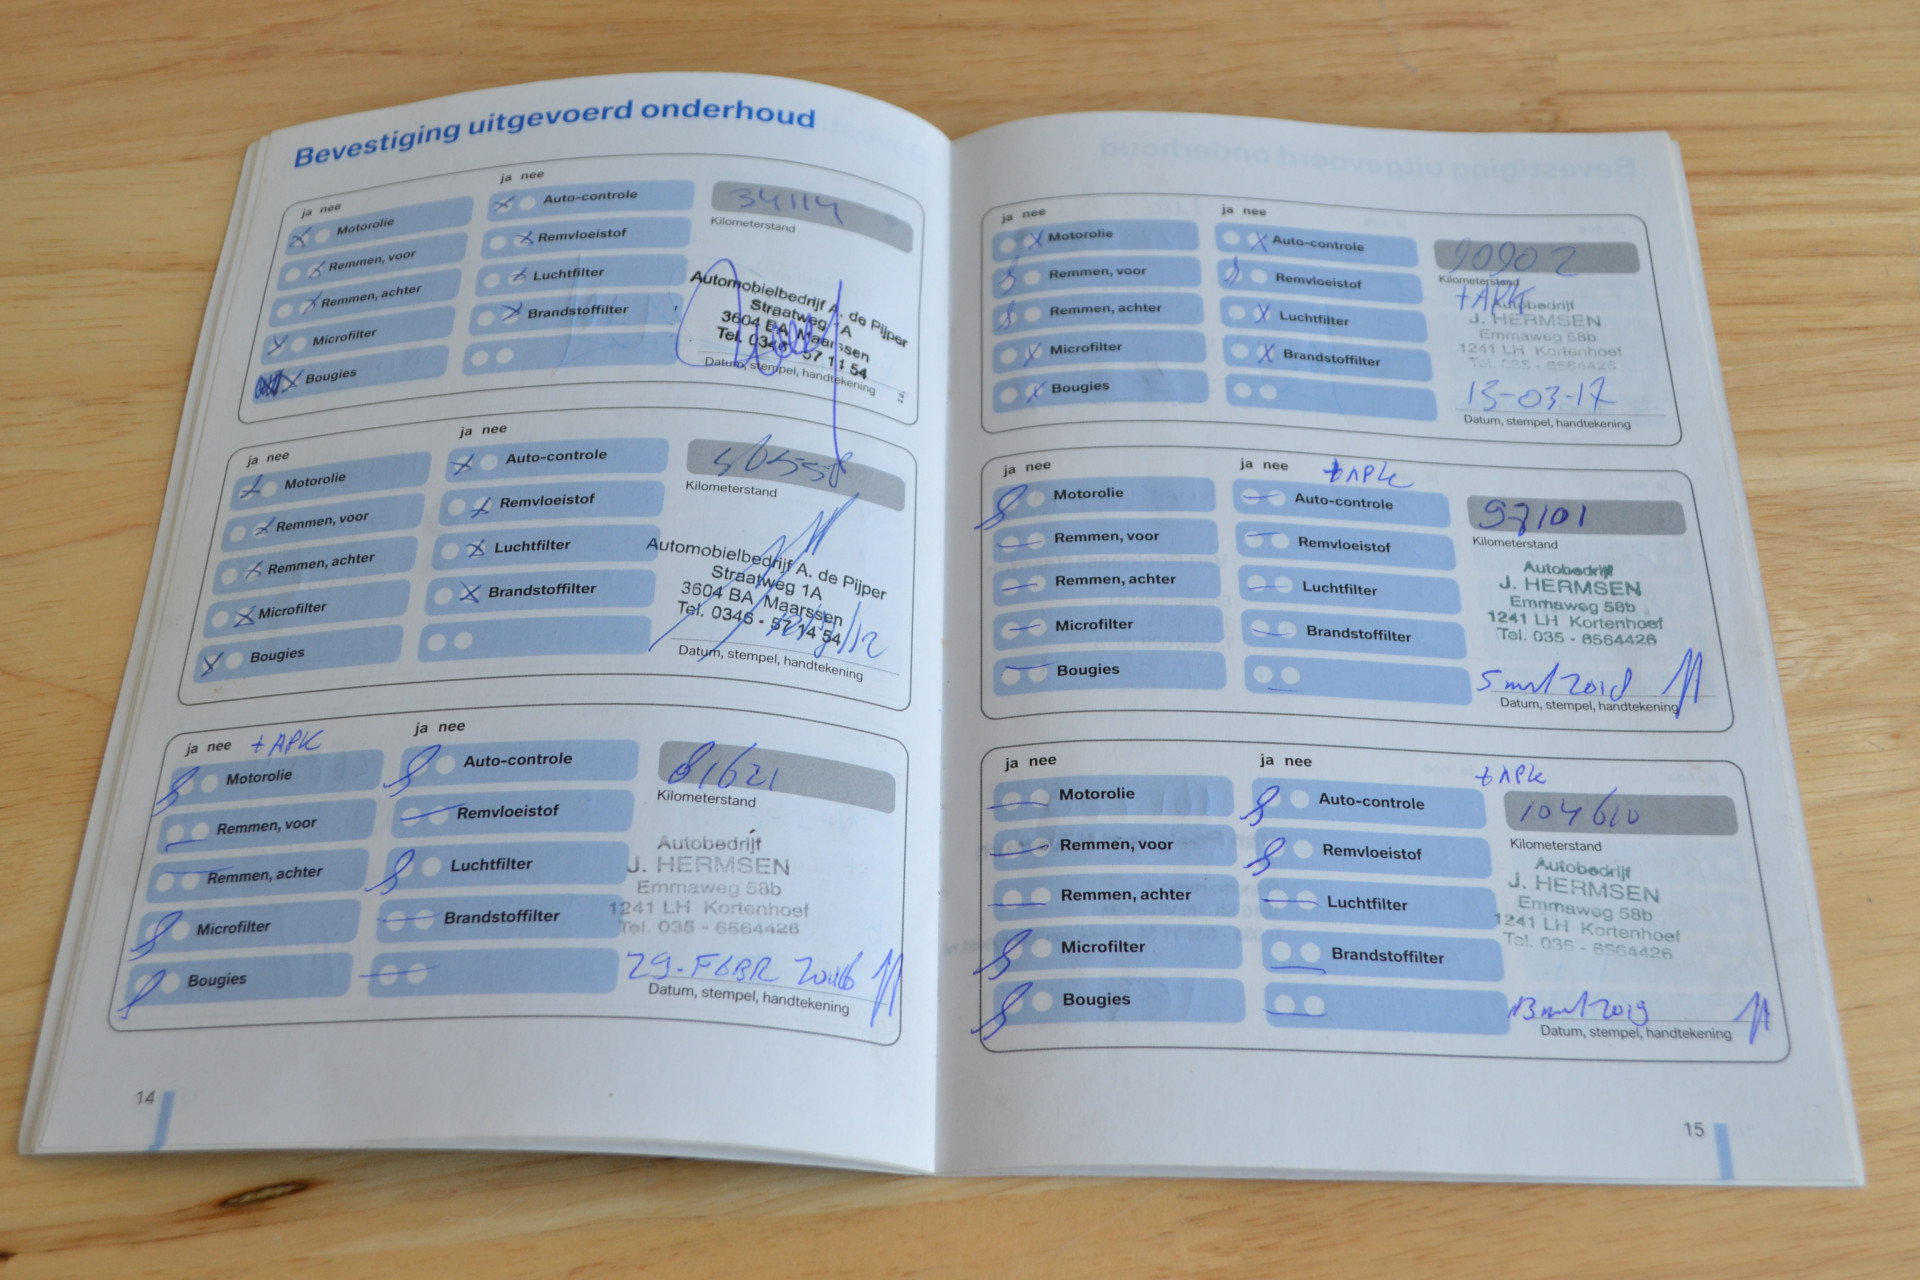 Bevestiging uitgevoerd onderhoud
ja nee
Motorolie
Remmen, voor
Remmen, achter
Microfilter
Bougies
ja nee
Auto-controle
Remvloeistof
Luchtfilter
Brandstoffilter
34114
Kilometerstand
Automobielbedrijf A. de Pijper
Straatweg 1A
3604 BA Maarssen
Tel. 0346 - 57 14 54
Datum, stempel, handtekening
ja nee
Motorolie
Remmen, voor
Remmen, achter
Microfilter
Bougies
ja nee
Auto-controle
Remvloeistof
Luchtfilter
Brandstoffilter
Kilometerstand
Automobielbedrijf A. de Pijper
Straatweg 1A
3604 BA Maarssen
Tel. 0346 - 57 14 54
Datum, stempel, handtekening
ja nee + APK
Motorolie
Remmen, voor
Remmen, achter
Microfilter
Bougies
ja nee
Auto-controle
Remvloeistof
Luchtfilter
Brandstoffilter
81621
Kilometerstand
Autobedrijf
J. HERMSEN
Emmaweg 58b
1241 LH Kortenhoef
Tel. 035 - 6564426
29. FEBR 2016
Datum, stempel, handtekening
14
ja nee
Motorolie
Remmen, voor
Remmen, achter
Microfilter
Bougies
ja nee
Auto-controle
Remvloeistof
Luchtfilter
Brandstoffilter
90902
Kilometerstand
+APK
Autobedrijf
J. HERMSEN
Emmaweg 58b
1241 LH Kortenhoef
Tel. 035 - 6564426
15-03-17
Datum, stempel, handtekening
ja nee
Motorolie
Remmen, voor
Remmen, achter
Microfilter
Bougies
ja nee
+APK
Auto-controle
Remvloeistof
Luchtfilter
Brandstoffilter
Kilometerstand
Autobedrijf
J. HERMSEN
Emmaweg 58b
1241 LH Kortenhoef
Tel. 035 - 6564426
5 mrt 2018
Datum, stempel, handtekening
ja nee
Motorolie
Remmen, voor
Remmen, achter
Microfilter
Bougies
ja nee
+ APK
Auto-controle
Remvloeistof
Luchtfilter
Brandstoffilter
104610
Kilometerstand
Autobedrijf
J. HERMSEN
Emmaweg 58b
1241 LH Kortenhoef
Tel. 035 - 6564426
13 mrt 2019
Datum, stempel, handtekening
15